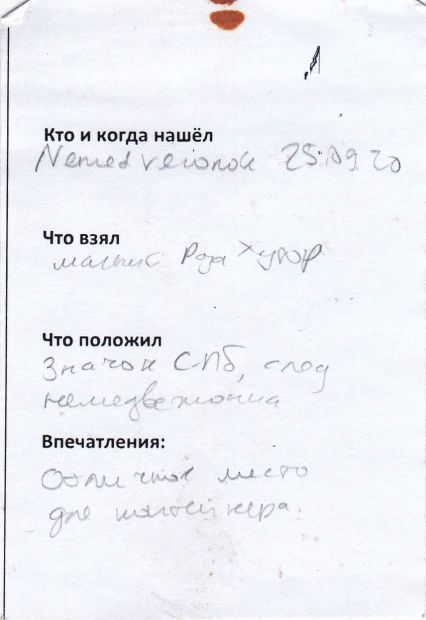 Кто и когда нашёл
Nemedveionok 25.09.20
Что взял
магнит Роза Хутор
Что положил
Значок СПб, след
немедвежонка
Впечатления:
Отличное место
для контейнера.